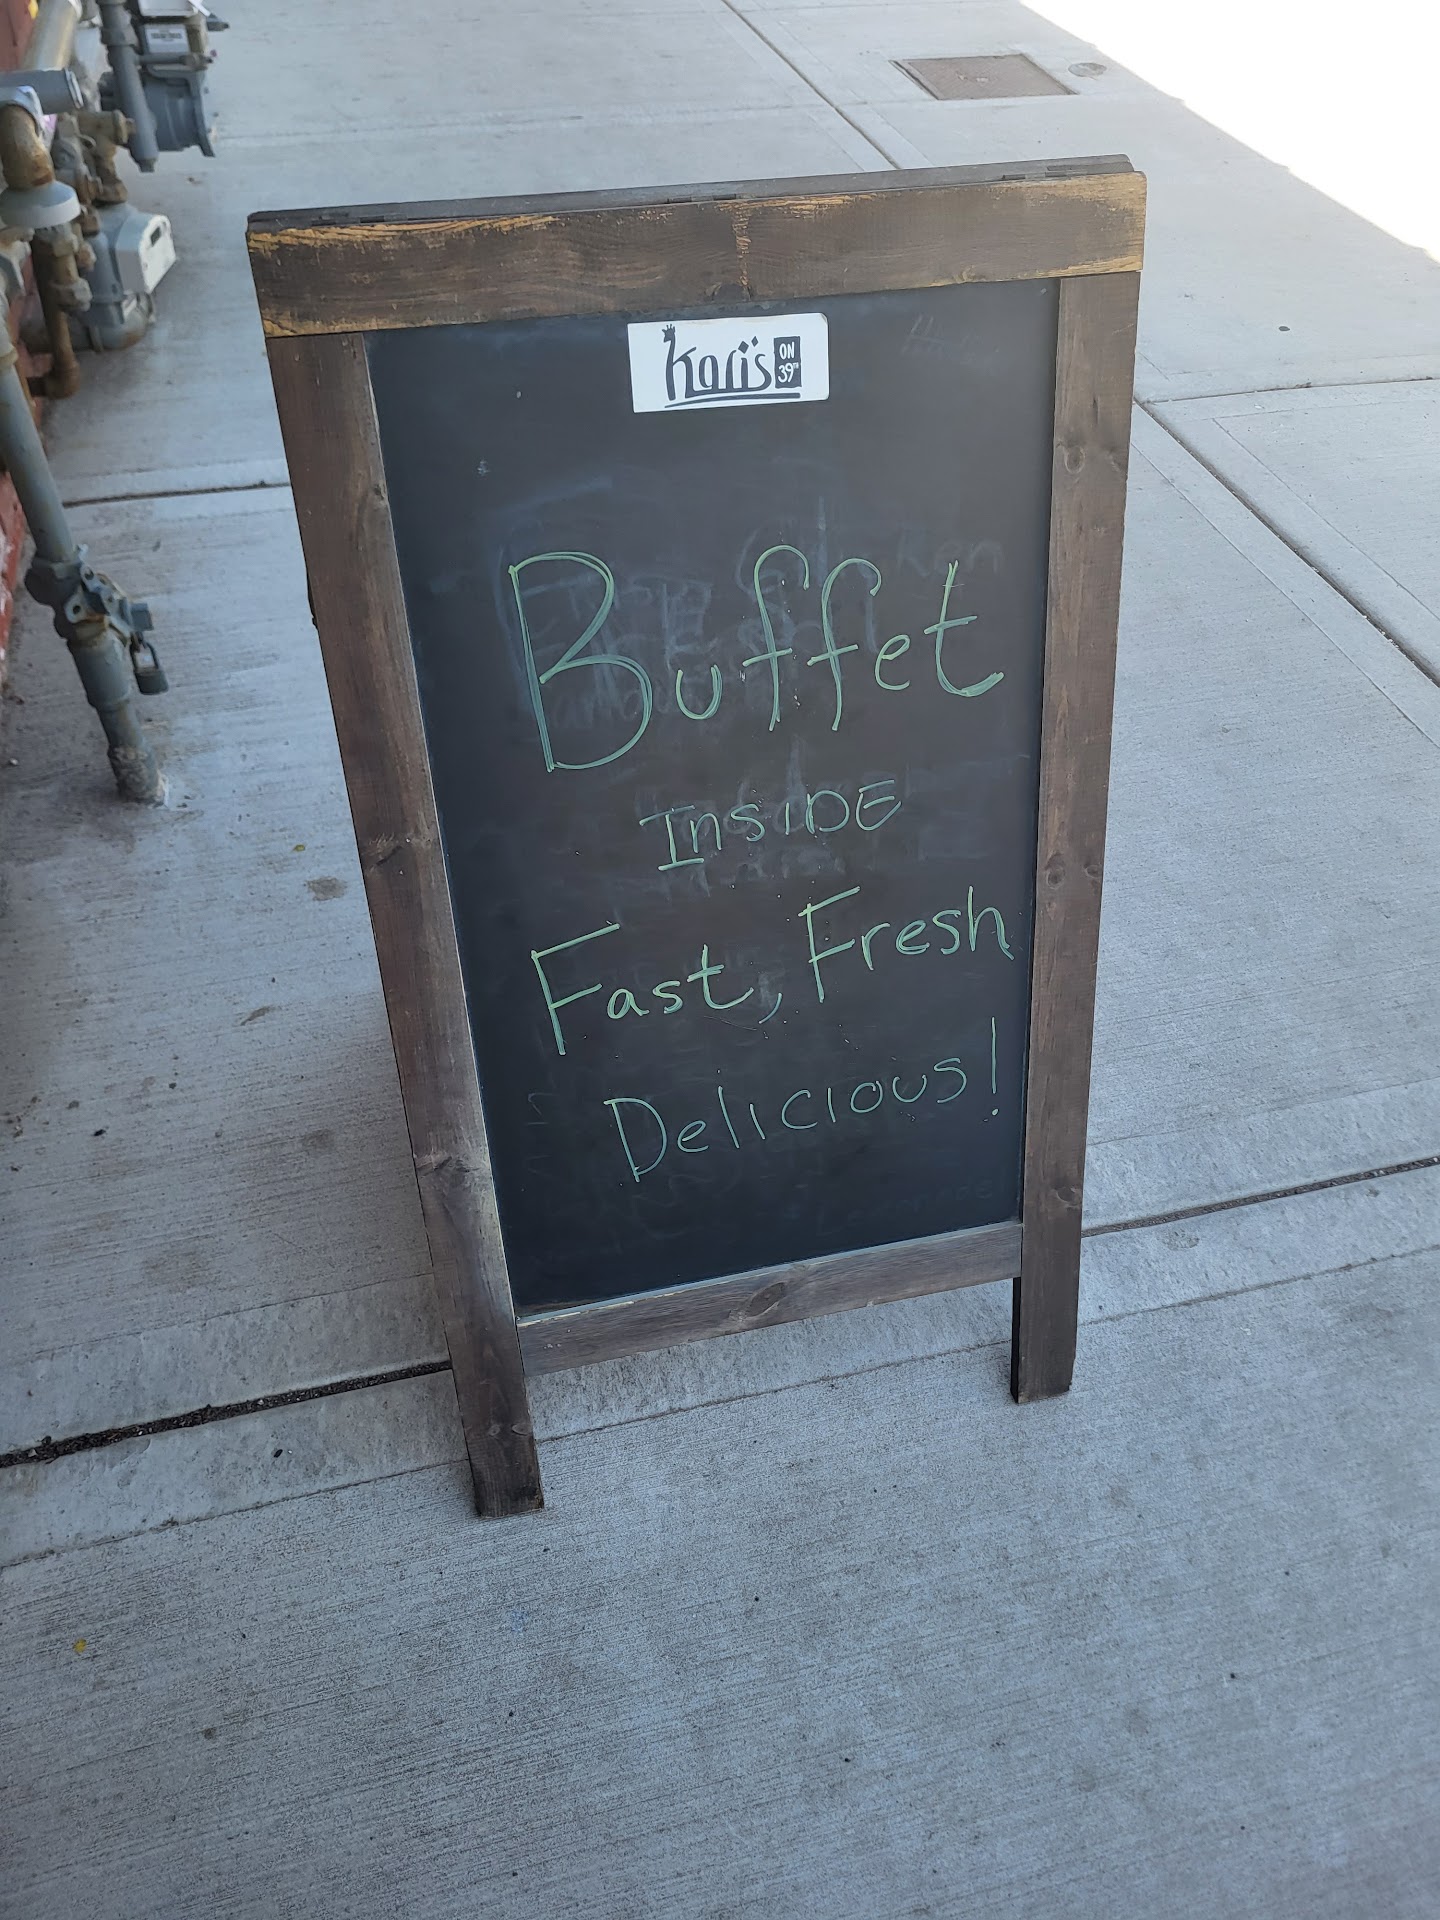 Kari's ON 39TH
Buffet
InSIDE
Fast, Fresh
Delicious!